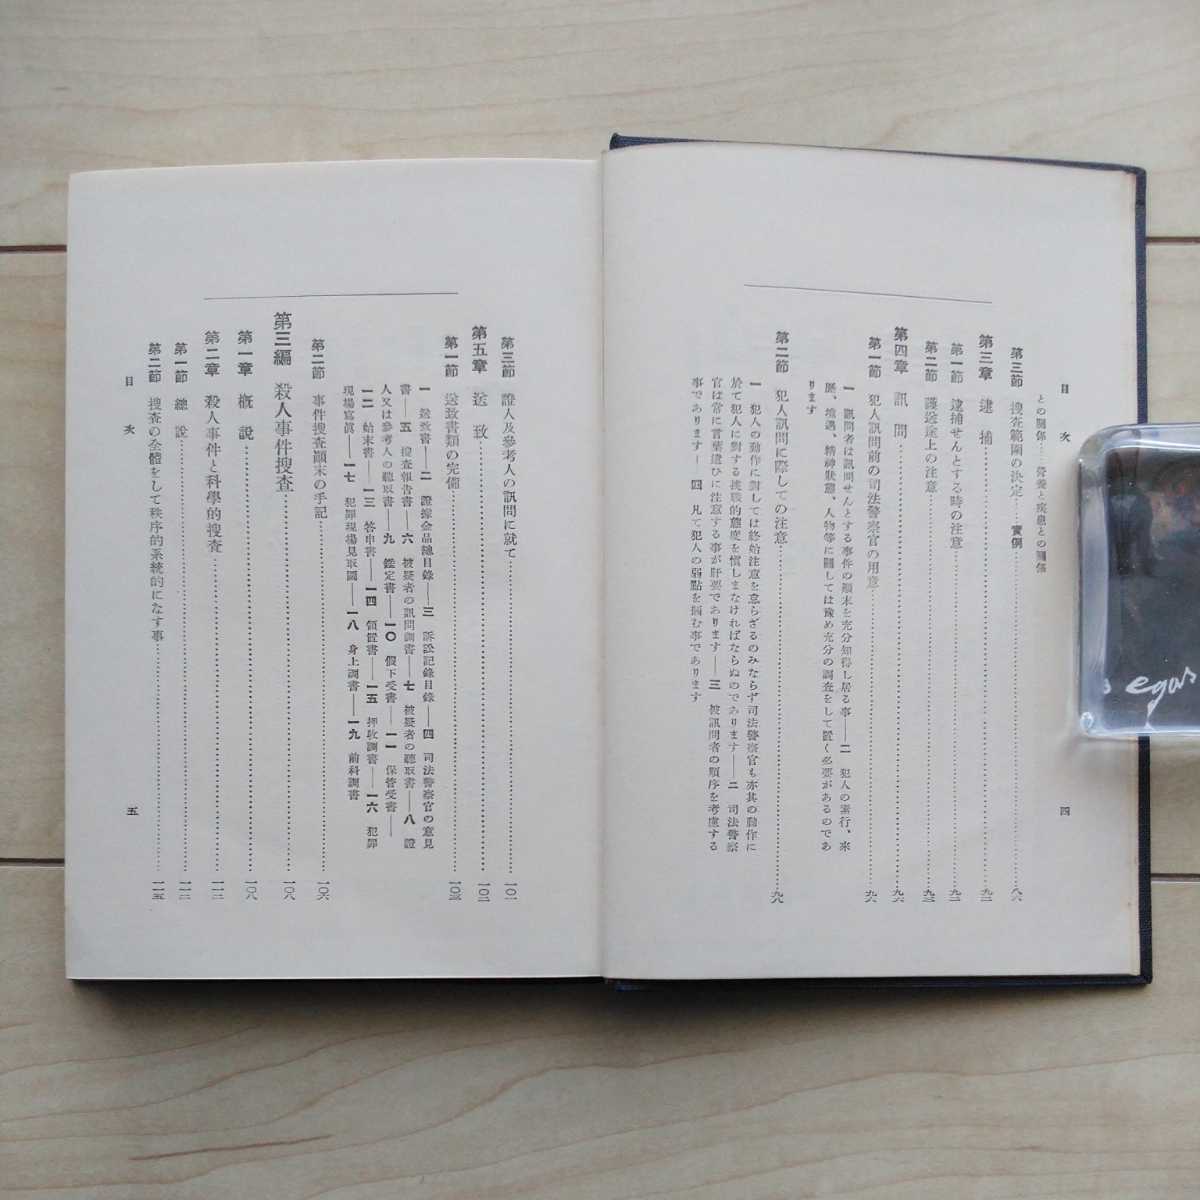 目次
四
との關係……營養と疾患との關係
第三節 搜査範圍の決定 實例……八六
第三章 逮捕……九二
第一節 逮捕せんとする時の注意……九二
第二節 護送途上の注意……九三
第四章 訊問……九六
第一節 犯人訊問前の司法警察官の用意……九六
一 訊問者は訊問せんとする事件の顚末を充分知得し居る事——二 犯人の素行、來
歷、境遇、精神狀態、人物等に關しては豫め充分の調査をして置く必要があるのであ
ります
第二節 犯人訊問に際しての注意……九八
一 犯人の動作に對しては終始注意を怠らざるのみならず司法警察官も亦其の動作に
於て犯人に對する挑戰的態度を愼しまなければならぬのであります——二 司法警察
官は常に言葉遣ひに注意する事が肝要であります——三 被訊問者の順序を考慮する
事であります——四 凡て犯人の弱點を摑む事であります
第三節 證人及參考人の訊問に就て……一〇一
第五章 送致……一〇二
第一節 送致書類の完備……一〇三
一 送致書——二 證據金品總目錄——三 訴訟記錄目錄——四 司法警察官の意見
書——五 搜査報告書——六 被疑者の訊問調書——七 被疑者の聽取書——八 證
人又は參考人の聽取書——九 鑑定書——一〇 假下受書——一一 保管受書——
一二 始末書——一三 答申書——一四 領置書——一五 押收調書——一六 犯罪
現場寫眞——一七 犯罪現場見取圖——一八 身上調書——一九 前科調書
第二節 事件搜査顚末の手記……一〇六
第三編 殺人事件搜査……一〇八
第一章 概說……一〇八
第二章 殺人事件と科學的搜査……一一三
第一節 總說……一一三
第二節 搜査の全體をして秩序的系統的になす事……一一五
目次
五
egas